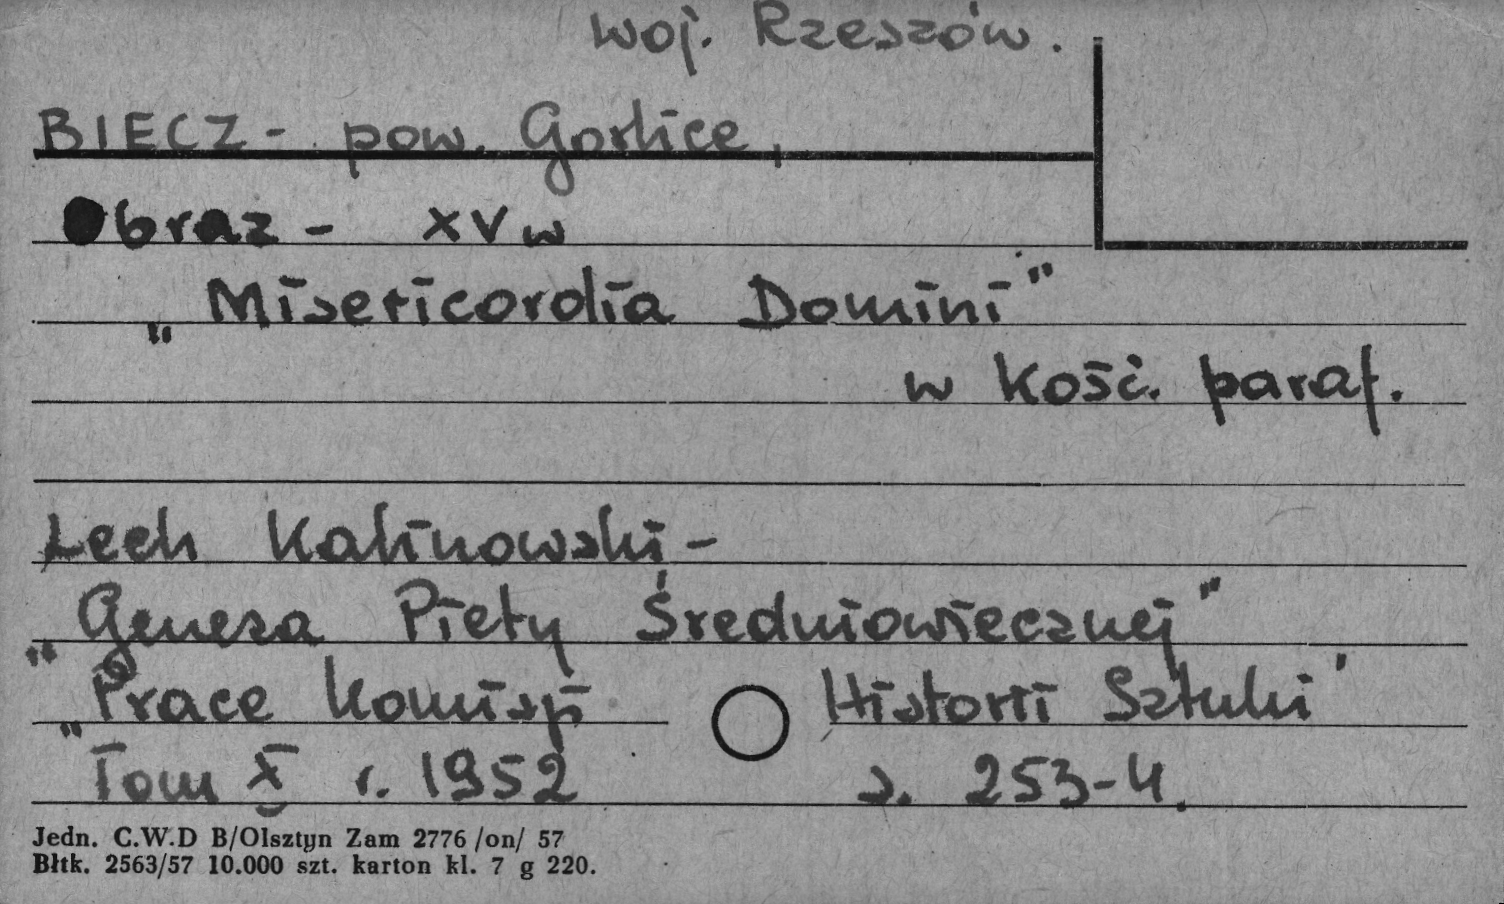 woj. Rzeszów.
BIECZ - pow. Gorlice,
Obraz - XV w
„Misericordia Domini"
w Kość. paraf.
Lech Kalinowski -
„Geneza Piety Średniowiecznej"
„Prace Komisji Historii Sztuki"
Tom X r. 1952 s. 253-4.
Jedn. C.W.D B/Olsztyn Zam 2776 /on/ 57
Błtk. 2563/57 10.000 szt. karton kl. 7 g 220.